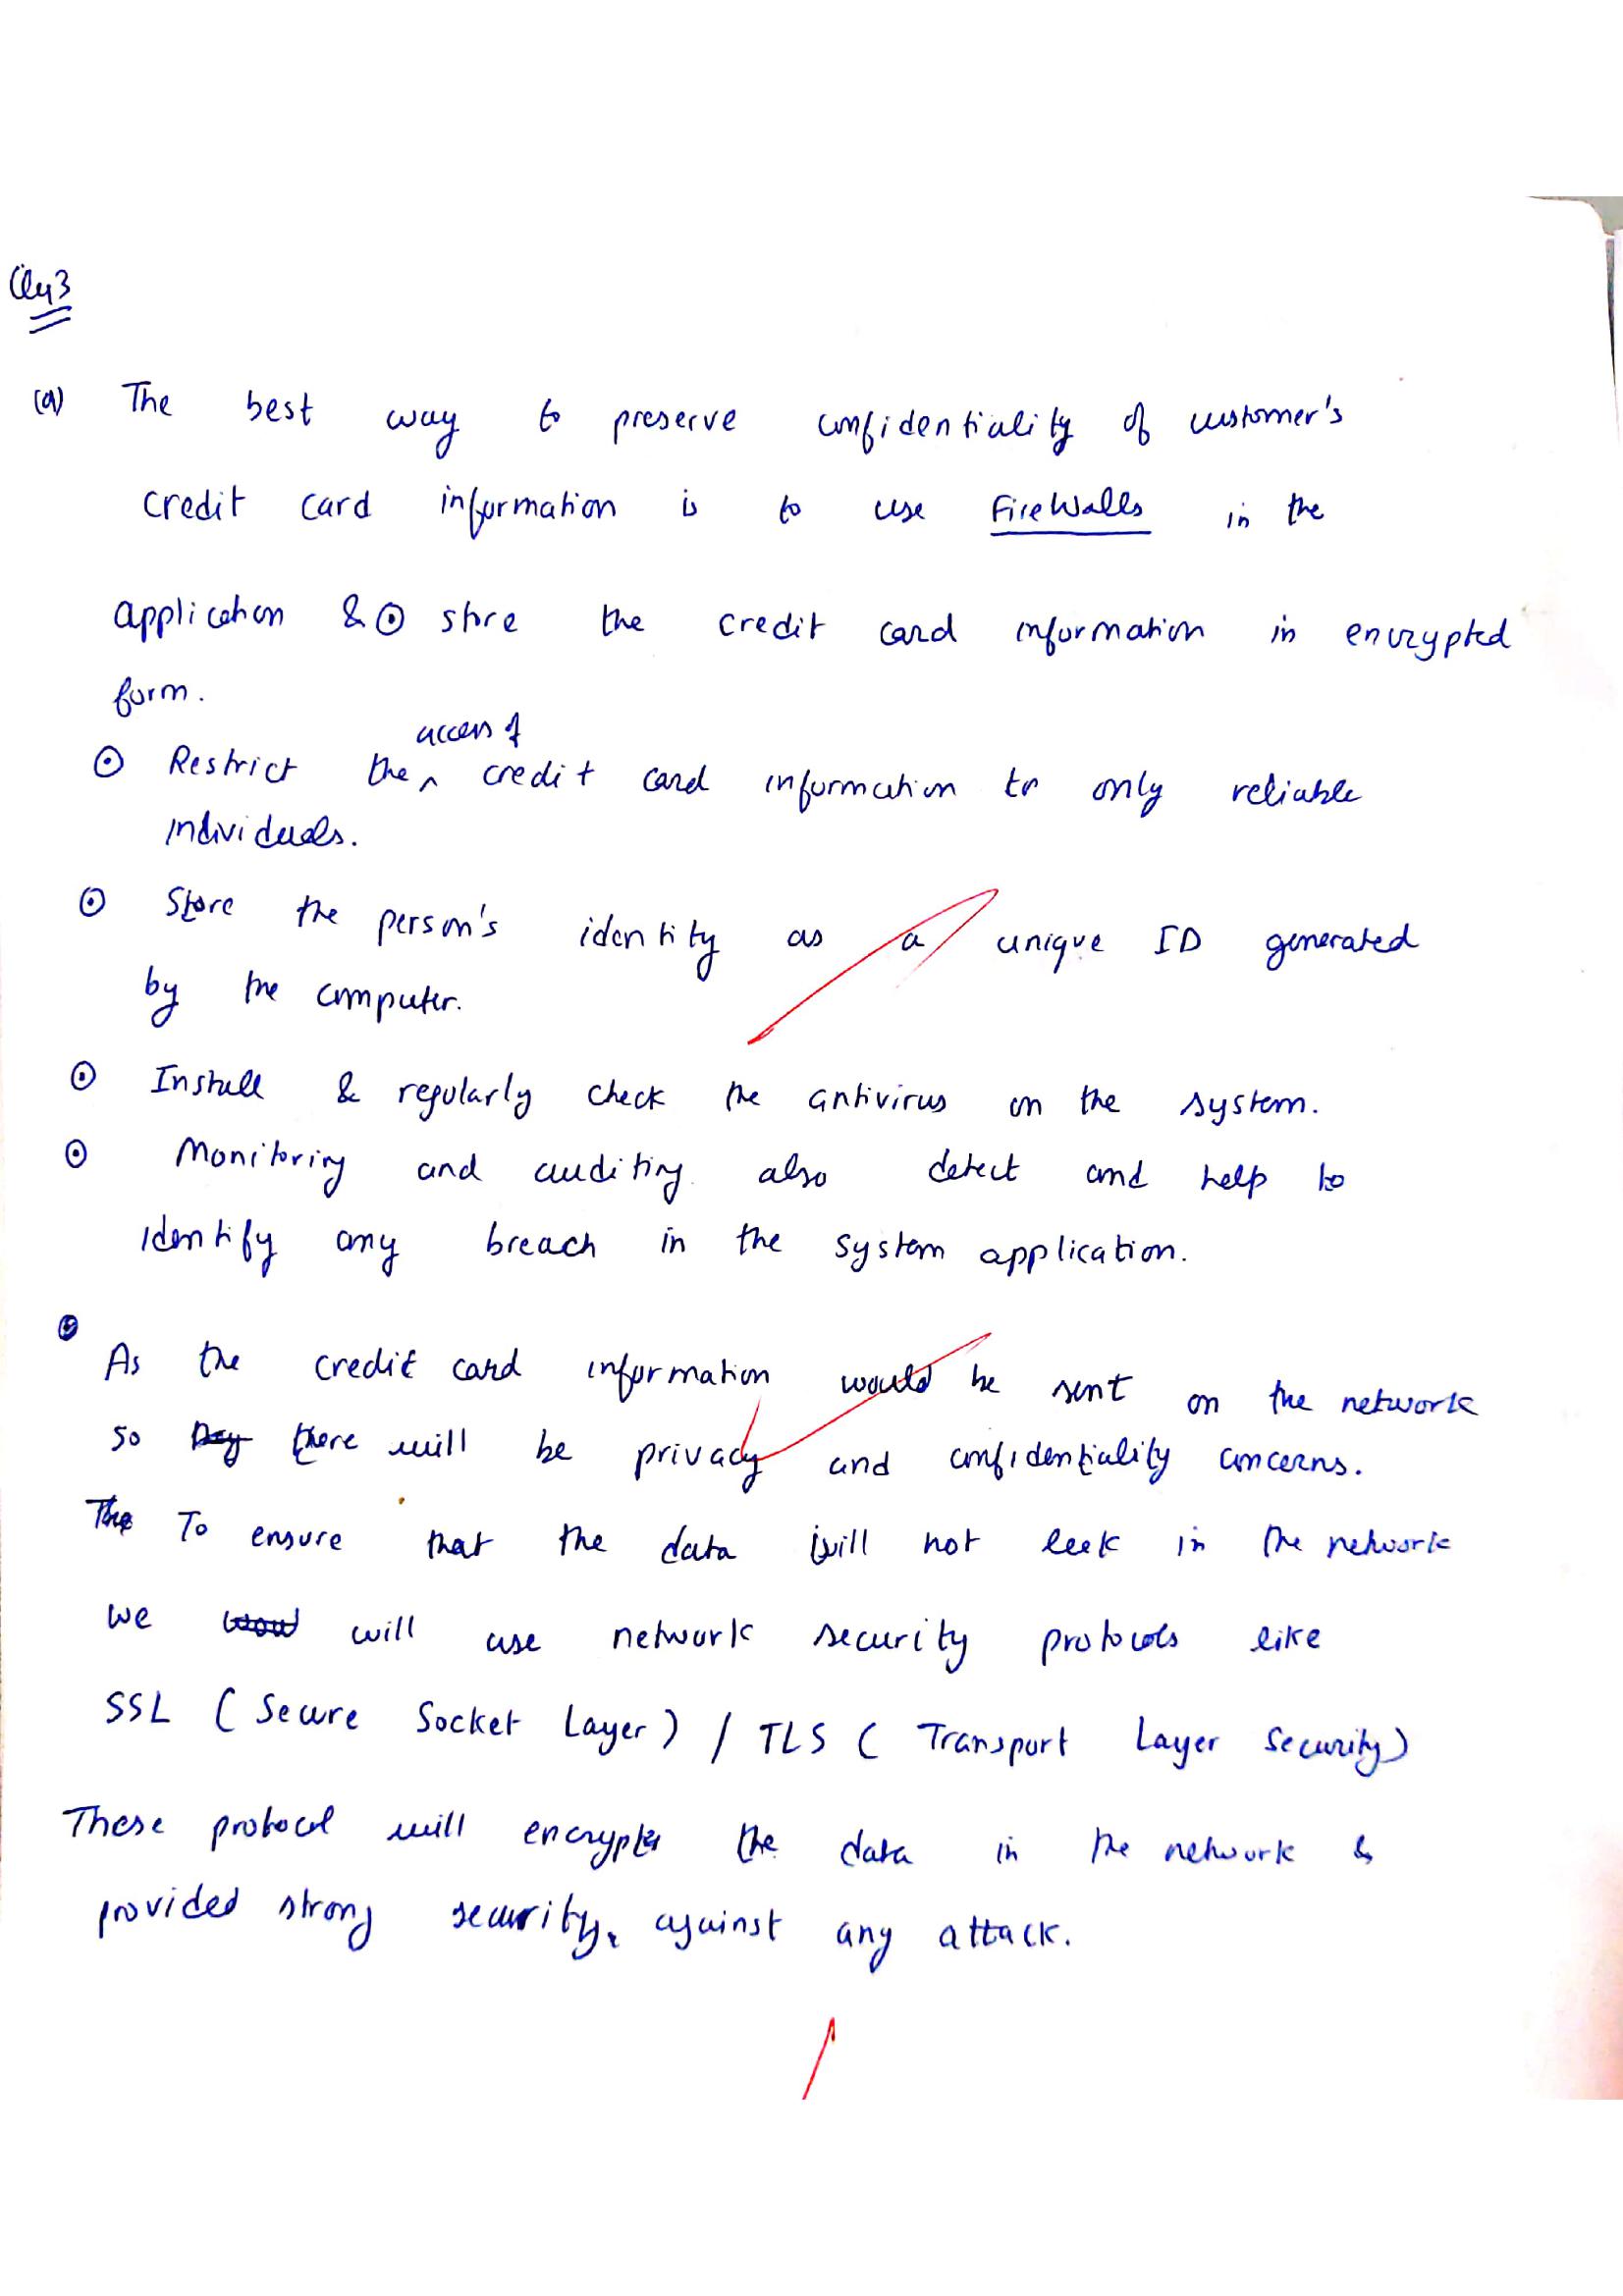 Qu3
(a) The best way to preserve confidentiality of customer's
credit card information is to use FireWalls in the
application & ⊙ store the credit card information in encrypted
form.
⊙ Restrict the ^ access of credit card information to only reliable
individuals.
⊙ Store the person's identity as a unique ID generated
by the computer.
⊙ Install & regularly check the antivirus on the system.
⊙ Monitoring and auditing also detect and help to
identify any breach in the system application.
As the credit card information would be sent on the network
so there will be privacy and confidentiality concerns.
To ensure that the data will not leek in the network
we will use network security protocols like
SSL (Secure Socket Layer) / TLS (Transport Layer Security)
These protocol will encrypt the data in the network &
provided strong security, against any attack.